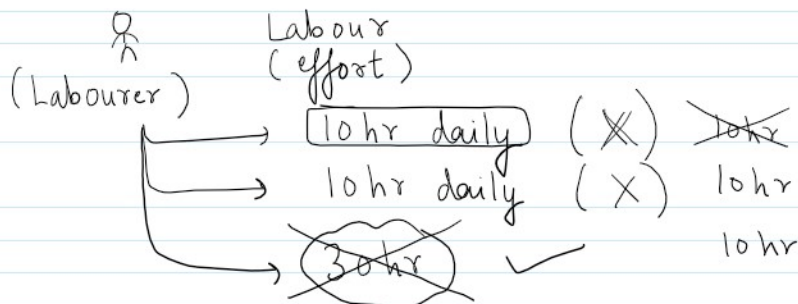 Labour
(effort)
(Labourer)
10 hr daily (X) 10hr
10 hr daily (X) 10hr
30hr ✓ 10hr